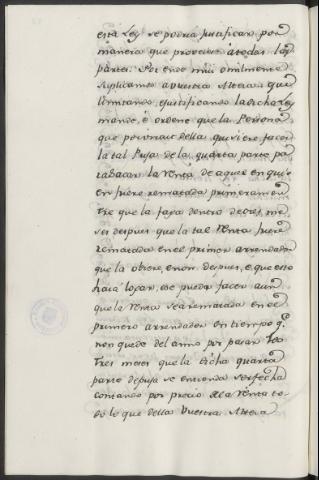 esta Ley se podria justificar por
manera que provecie a todas las
partes. Por ende mui omilmente
suplicamos a vuestra Alteza que
limitando, e justificando la dicha Ley
mande, e ordene que la Persona
que por virtud della quisiere facer
la tal Puja de la quarta parte pa
ra sacar la renta de aquel en qui
en fuere rematada primeramen
tre que la faga dentro de tres me
ses despues que la tal renta fuere
rematada en el primer arrendador
que la obiere, e non despues, e que esto
haia logar, e se pueda facer aun
que la renta sea rematada en el
primero arrendador en tiempo q.e
non quede del año por pasar los
tres meses que la dicha quarta
parte de puja se entienda ser fecha
contando por precio de la renta to
do lo que della Vuestra Alteza